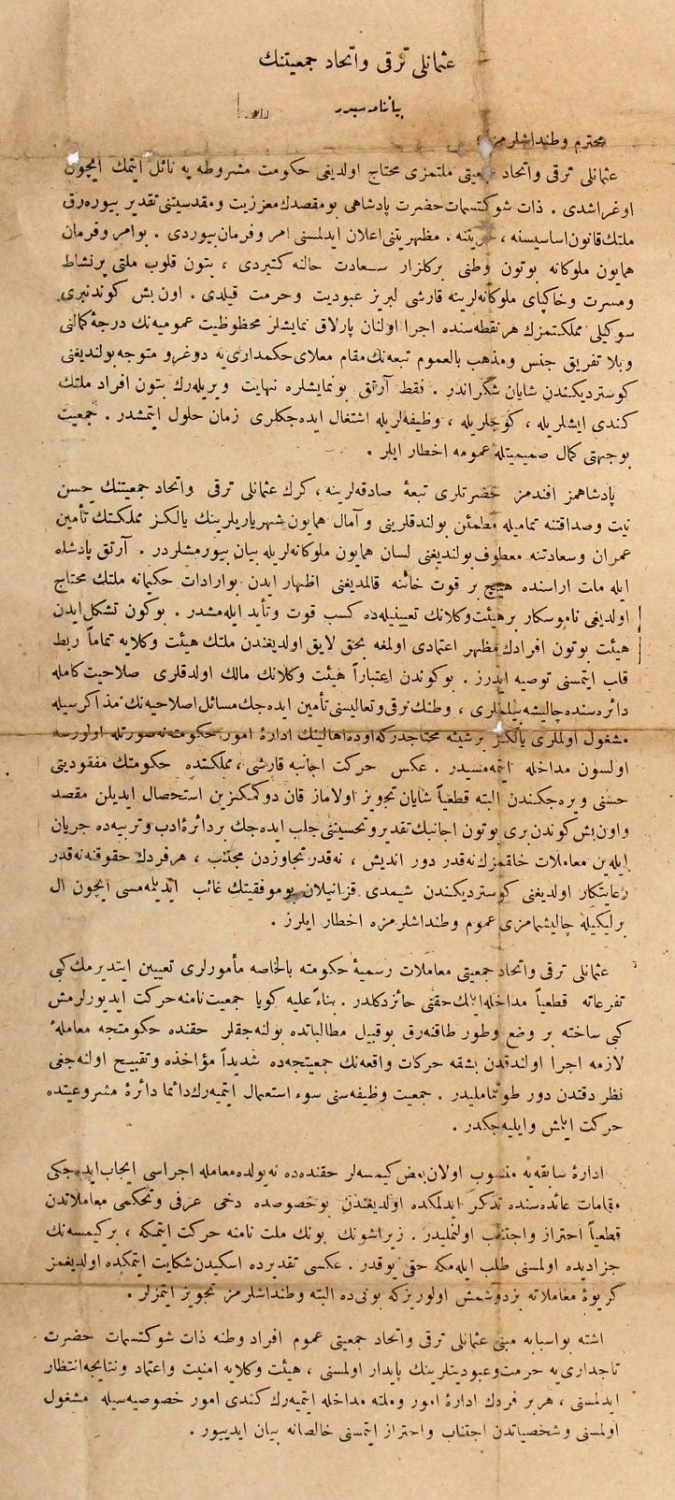 عثمانلی ترقی واتحاد جمعیتنك
بیاننامه سیدر
محترم وطنداشلرمز
عثمانلی ترقی واتحاد جمعیتی ملتمزی محتاج اولدیغی حكومت مشروطه یه نائل ایتمك ایچون
اوغراشدی . ذات شوكتسمات حضرت پادشاهی بومقصدك معززیت ومقدسیتنی تقدیر بیوره رق
ملتك قانون اساسیسنه ، حریتنه . مظهریتنی اعلان ایدلمسنی امر وفرمان بیوردی . بوامر وفرمان
همایون ملوكانه بوتون وطنی بركلزار سعادت حالنه كتیردی ، بتون قلوب ملتی پرنشاط
ومسرت وخاكپای ملوكانه لرینه قارشی لبریز عبودیت وحرمت قیلدی . اون بش كوندنبری
سوكیلی مملكتمزك هر نقطه سنده اجرا اولنان پارلاق نمایشلر محظوظیت عمومیه نك درجهٔ كمالنی
وبلا تفریق جنس ومذهب بالعموم تبعه نك مقام معلای حكمداری یه دوغرو متوجه بولندیغنی
كوستردیكندن شایان شكراندر . فقط آرتق بونمایشلره نهایت ویریله رك بتون افراد ملتك
كندی ایشلریله ، كوجلریله ، وظیفه لریله اشتغال ایده جكلری زمان حلول ایتمشدر . جمعیت
بوجهتی كمال صمیمیتله عمومه اخطار ایلر .
پادشاهمز افندمز حضرتلری تبعهٔ صادقه لرینه ، كرك عثمانلی ترقی واتحاد جمعیتنك حسن
نیت وصداقتنه تمامیله مطمئن بولندقلرینی و آمال همایون شهریاریلرینك یالكز مملكتك تأمین
عمران وسعادتنه معطوف بولندیغنی لسان همایون ملوكانه لریله بیان بیورمشلردر . آرتق پادشاه
ایله ملت اراسنده هیچ بر قوت خائنه قالمدیغنی اظهار ایدن بوارادات حكیمانه ملتك محتاج
اولدیغی ناموسكار برهیئت وكلانك تعیینیله ده كسب قوت وتأید ایله مشدر . بوكون تشكل ایدن
هیئت بوتون افرادك مظهر اعتمادی اولمغه بحق لایق اولدیغندن ملتك هیئت وكلایه تماماً ربط
قلب ایتمسنی توصیه ایدرز . بوكوندن اعتباراً هیئت وكلانك مالك اولدقلری صلاحیت كامله
دائره سنده چالیشه بیلملری ، وطنك ترقی وتعالیسنی تأمین ایده جك مسائل اصلاحیه نك مذاكرسیله
مشغول اولملری یالكز برشیئه محتاجدركه اوده اهالینك ادارهٔ امور حكومته نه صورتله اولورسه
اولسون مداخله ایتمه مسیدر . عكس حركت اجانبه قارشی ، مملكتده حكومتك مفقودیتی
حسنی ویره جكندن البته قطعیاً شایان تجویز اولاماز قان دوكمكسزین استحصال ایدیلن مقصد
واون بش كوندن بری بوتون اجانبك تقدیر وتحسیننی جلب ایده جك بردائرهٔ ادب وتربیه ده جریان
ایله ین معاملات خلقمزك نه قدر دور اندیش ، نه قدر تجاوزدن مجتنب ، هر فردك حقوقنه نه قدر
رعایتكار اولدیغنی كوستردیكندن شیمدی قزانیلان بوموفقیتك غائب ایدیله مسی ایچون ال
برلیكیله چالیشمامزی عموم وطنداشلرمزه اخطار ایلرز .
عثمانلی ترقی واتحاد جمعیتی معاملات رسمیهٔ حكومته بالخاصه مأمورلری تعیین ایتدیرمك كبی
تفرعاته قطعیاً مداخله ایتمك حقنی حائز دكلدر . بناءً علیه كویا جمعیت نامنه حركت ایدیورلرمش
كبی ساخته بر وضع وطور طاقنه رق بوقبیل مطالباتده بولنه جقلر حقنده حكومتجه معاملهٔ
لازمه اجرا اولندقدن بشقه حركات واقعه نك جمعیتجه ده شدیداً مؤاخذه وتقبیح اولنه جغی
نظر دقتدن دور طوتلماملیدر . جمعیت وظیفه سنی سوء استعمال ایتمیه رك دائما دائرهٔ مشروعیتده
حركت ایتمش وایلیه جكدر .
ادارهٔ سابقه یه منسوب اولان بعض كیمسه لر حقنده ده نه یولده معامله اجراسی ایجاب ایده جكی
مقامات عائده سنده تذكر ایدلمكده اولدیغندن بوخصوصده دخی عرفی وتحكمی معاملاتدن
قطعیاً احتراز واجتناب اولنملیدر . زیرا شونك بونك ملت نامنه حركت ایتمكه ، بركیمسه نك
جزادیده اولمسنی طلب ایله مكه حقی یوقدر . عكسی تقدیرده اسكیدن شكایت ایتمكده اولدیغمز
كریوهٔ معاملاته بزدوشمش اولورزكه بونی ده البته وطنداشلرمز تجویز ایتمزلر .
اشته بواسبابه مبنی عثمانلی ترقی واتحاد جمعیتی عموم افراد وطنه ذات شوكتسمات حضرت
تاجداری یه حرمت وعبودیتلرینك پایدار اولمسنی ، هیئت وكلایه امنیت واعتماد ونتایجه انتظار
ایدلمسنی ، هر بر فردك ادارهٔ امور وملته مداخله ایتمیه رك كندی امور خصوصیه سیله مشغول
اولمسنی وشخصیاتدن اجتناب واحتراز ایتمسنی خالصانه بیان ایدییور .